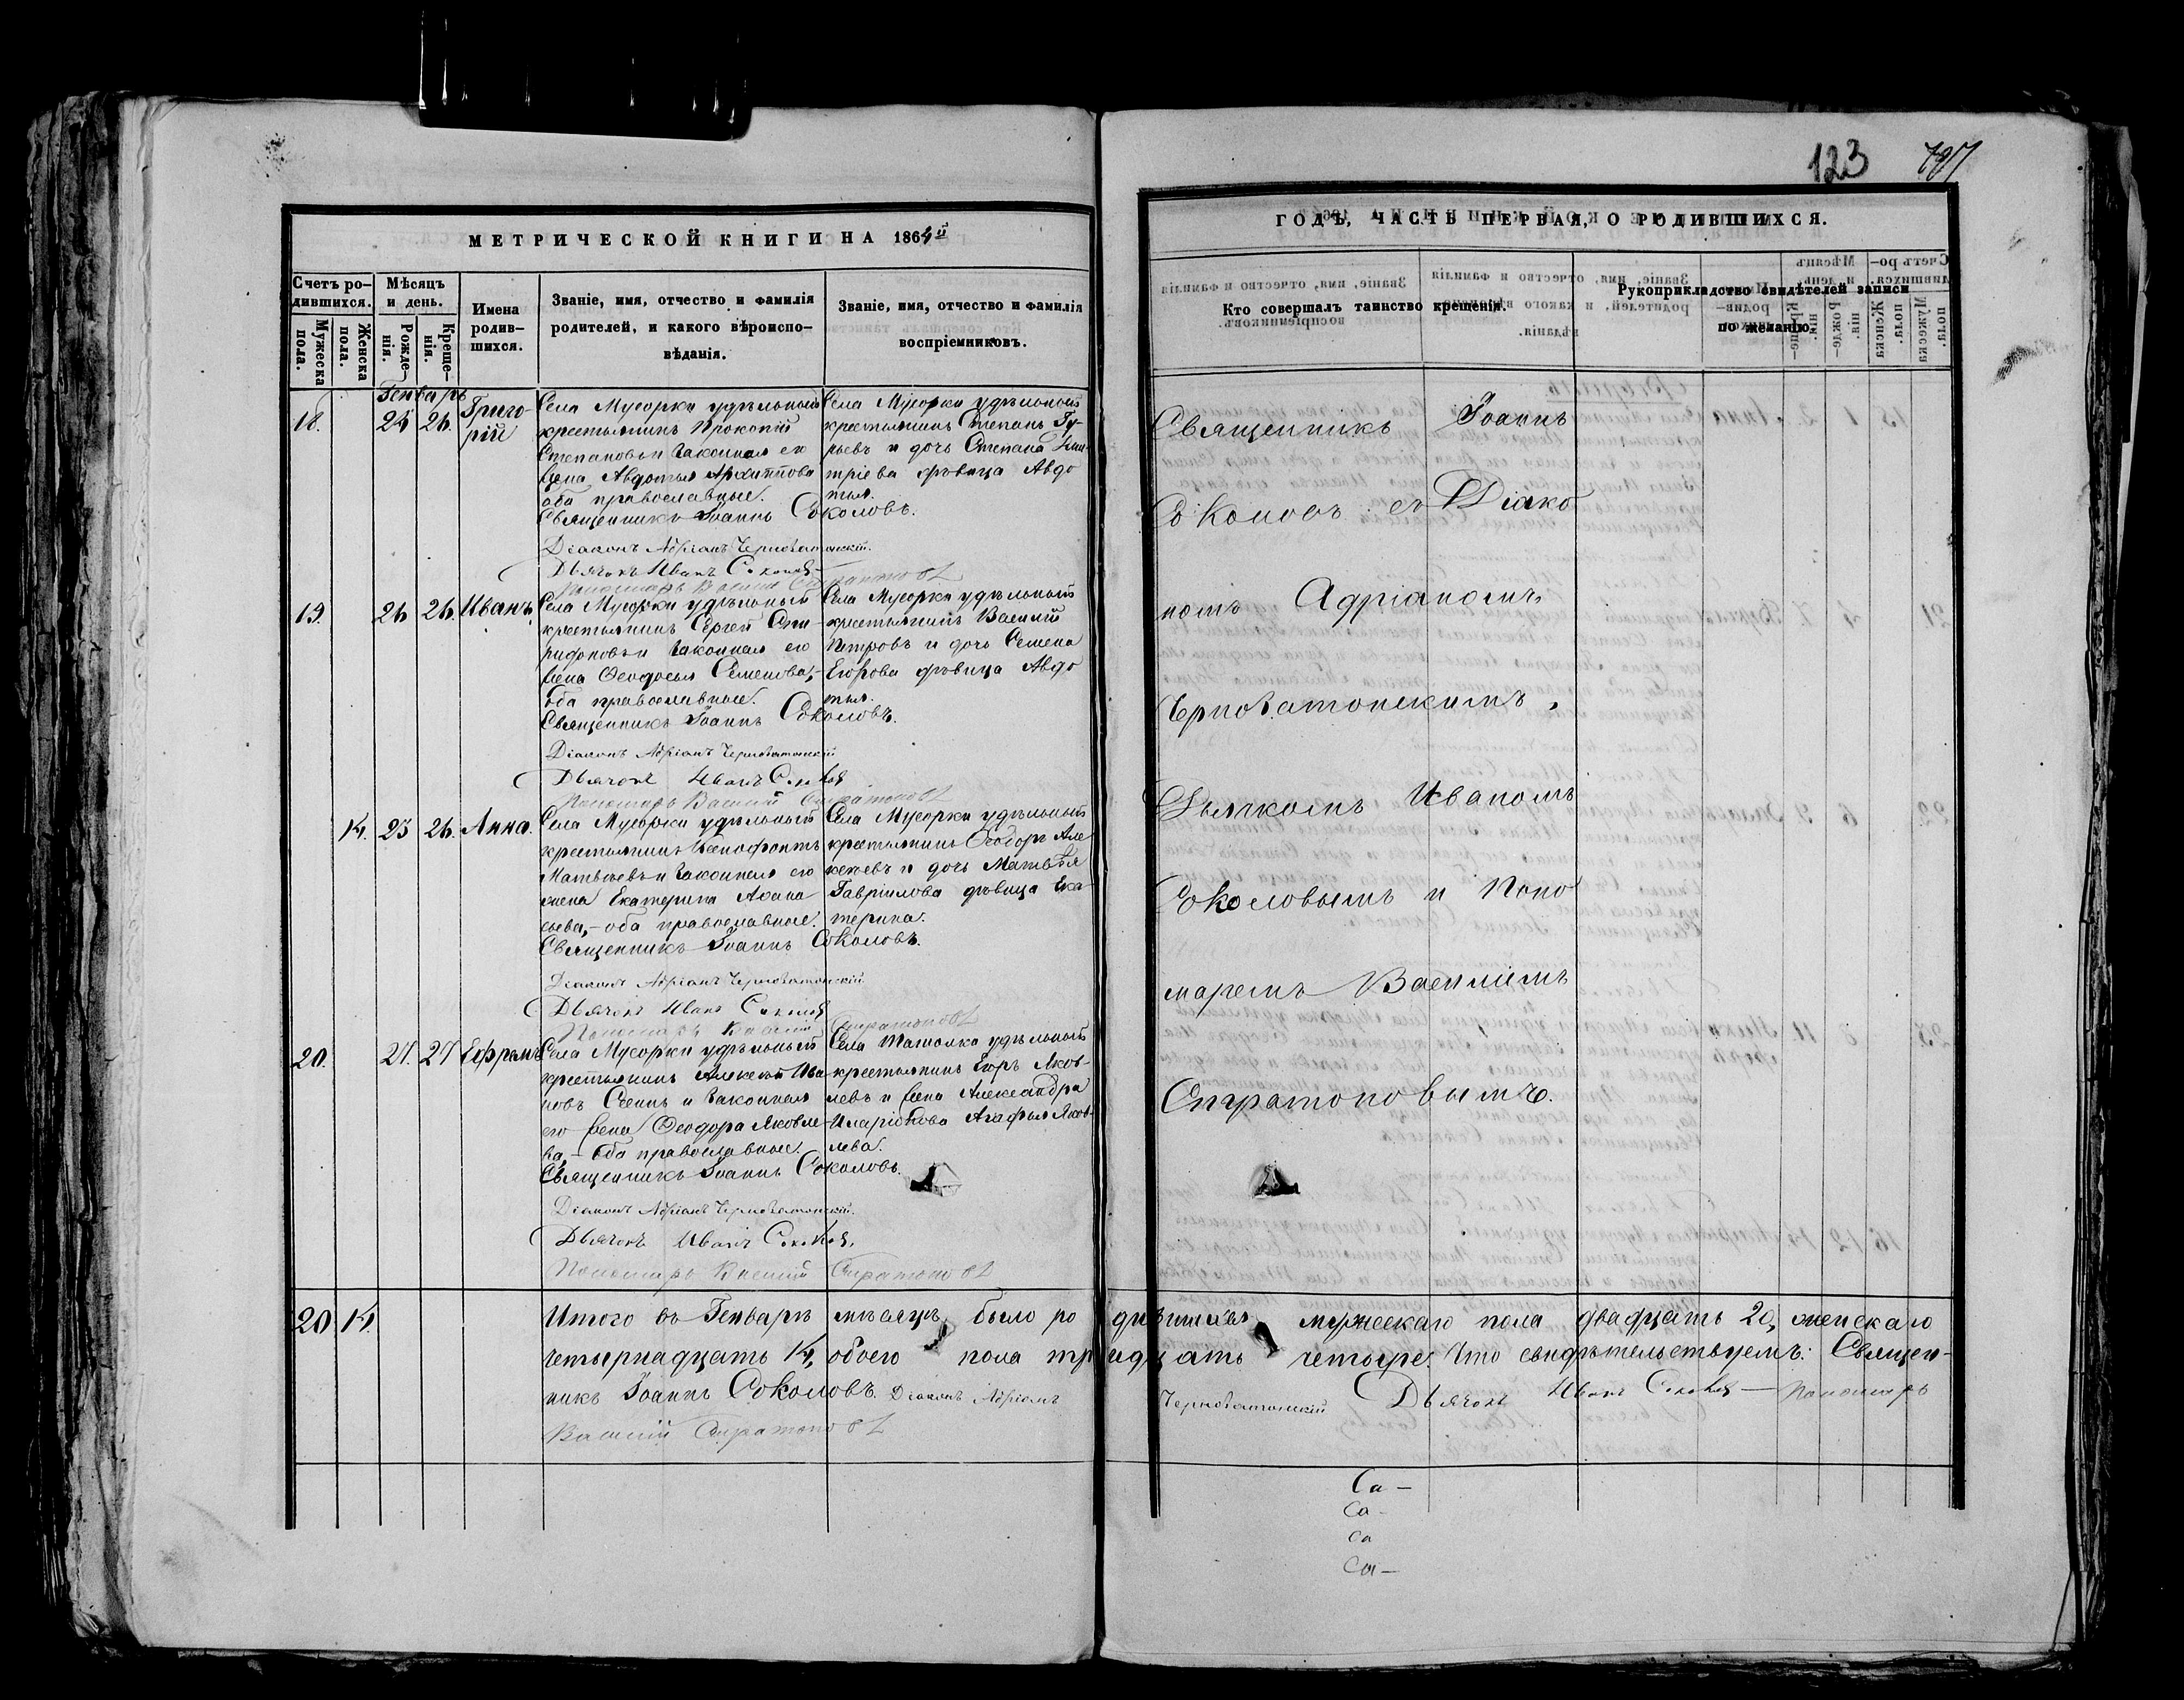 123
МЕТРИЧЕСКОЙ КНИГИ НА 1864й
ГОДЪ, ЧАСТЬ ПЕРВАЯ, О РОДИВШИХСЯ.
Счетъ ро-
дившихся.
Мужеска пола.
Женска пола.
Мѣсяцъ
и день.
Рожде-
нія.
Креще-
нія.
Имена
родив-
шихся.
Званіе, имя, отчество и фамилія
родителей, и какого вѣроиспо-
вѣданія.
Званіе, имя, отчество и фамилія
воспріемниковъ.
Кто совершалъ таинство крещенія.
Рукоприкладство свидѣтелей записи
по желанію.
Генварь
18. 24 26. Григо-
рій
Села Мусорки удѣльный
крестьянинъ Прокопій
Степановъ и законная его
жена Авдотья Архиппова
оба православные.
Села Мусорки удѣльный
крестьянинъ Степанъ Гу-
рьевъ и дочь Степана Дми-
тріева дѣвица Авдо
тья.
Священникъ Іоаннъ Соколовъ.
Діаконъ Адріанъ Черноватонскій.
Дьячокъ Иванъ Соколов
Пономарь Василій Стратоновъ
19. 26 26. Иванъ.
Села Мусорки удѣльный
крестьянинъ Сергей Спи-
ридоновъ и законная его
жена Ѳеодосья Семенова,-
оба православные.
Села Мусорки удѣльный
крестьянинъ Василій
Петровъ и дочь Семена
Егорова дѣвица Авдо
тья.
Священникъ Іоаннъ Соколовъ.
Діаконъ Адріанъ Черноватонскій
Дьячокъ Иванъ Соколов
Пономарь Василій Стратоновъ
14. 25 26. Анна.
Села Мусорки удѣльный
крестьянинъ Ксенофонтъ
Матвѣевъ и законная его
жена Екатерина Афана
сьева,- оба православные.
Села Мусорки удѣльный
крестьянинъ Ѳеодоръ Але
ксеевъ и дочь Матвѣя
Гаврилова дѣвица Ека-
терина.
Священникъ Іоаннъ Соколовъ.
Діаконъ Адріанъ Черноватонскій
Дьячокъ Иванъ Соколов
Пономарь Василій Стратоновъ
20. 27. 27 Ефремъ
Села Мусорки удѣльный
крестьянинъ Алексей Ива
новъ и законная
его жена Ѳеодора Яковле-
ва,- оба православные.
Села Ташолка удѣльный
крестьянинъ Егоръ Яков-
левъ и жена Александра
Иларіонова Агафья Яков-
лева.
Священникъ Іоаннъ Соколовъ.
Діаконъ Адріанъ Черноватонскій.
Дьячокъ Иванъ Соколов
Пономарь Василій Стратоновъ
Священникъ Іоаннъ
Соколовъ съ Діако
номъ Адріаномъ
Черноватонскимъ,
Дьячкомъ Иваномъ
Соколовымъ и Поно
маремъ Василіемъ
Стратоновымъ.
20 14. Итого въ Генварѣ мѣсяцѣ было родившихся мужескаго пола двадцать 20, женскаго
четырнадцать 14, обоего пола тридцать четыре. Что свидѣтельствуемъ: Священ-
никъ Іоаннъ Соколовъ. Діаконъ Адріанъ Черноватонскій Дьячокъ Иванъ Соколов Пономарь
Василій Стратоновъ
Са-
Са-
Са
Са-